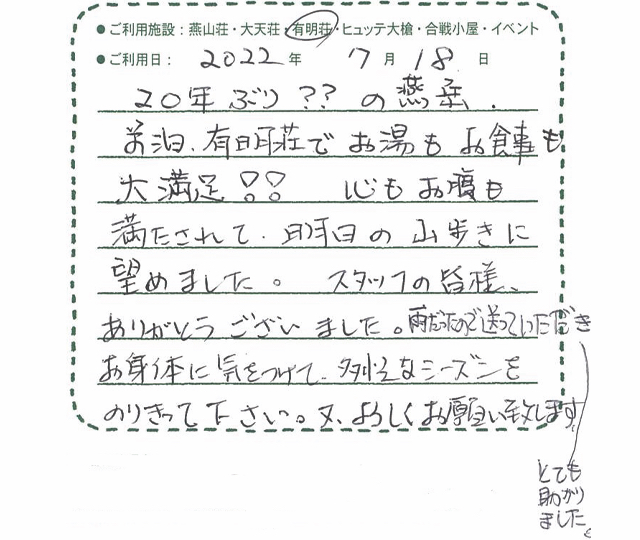 ●ご利用施設：燕山荘・大天荘・有明荘・ヒュッテ大槍・合戦小屋・イベント
●ご利用日： 2022 年 7 月 18 日
20年ぶり??の燕岳.
前泊、有明荘でお湯もお食事も
大満足!! 心もお腹も
満たされて、明日の山歩きに
望めました。 スタッフの皆様、
ありがとうございました。雨だったので送っていただき
お身体に気をつけて、多忙なシーズンを
のりきって下さい。又、よろしくお願い致します
とても
助かり
ました。